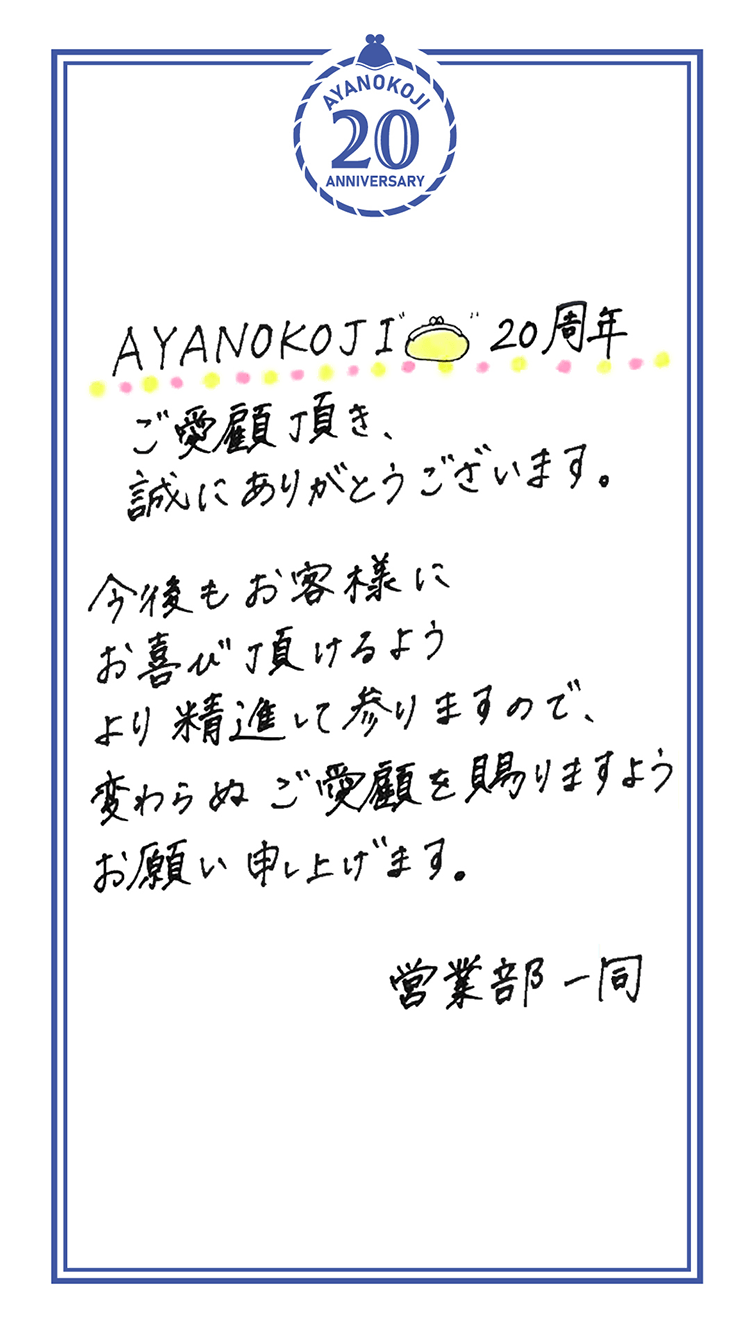 AYANOKOJI
20
ANNIVERSARY
AYANOKOJI 20周年
ご愛顧頂き、
誠にありがとうございます。
今後もお客様に
お喜び頂けるよう
より精進して参りますので、
変わらぬご愛顧を賜りますよう
お願い申し上げます。
営業部一同